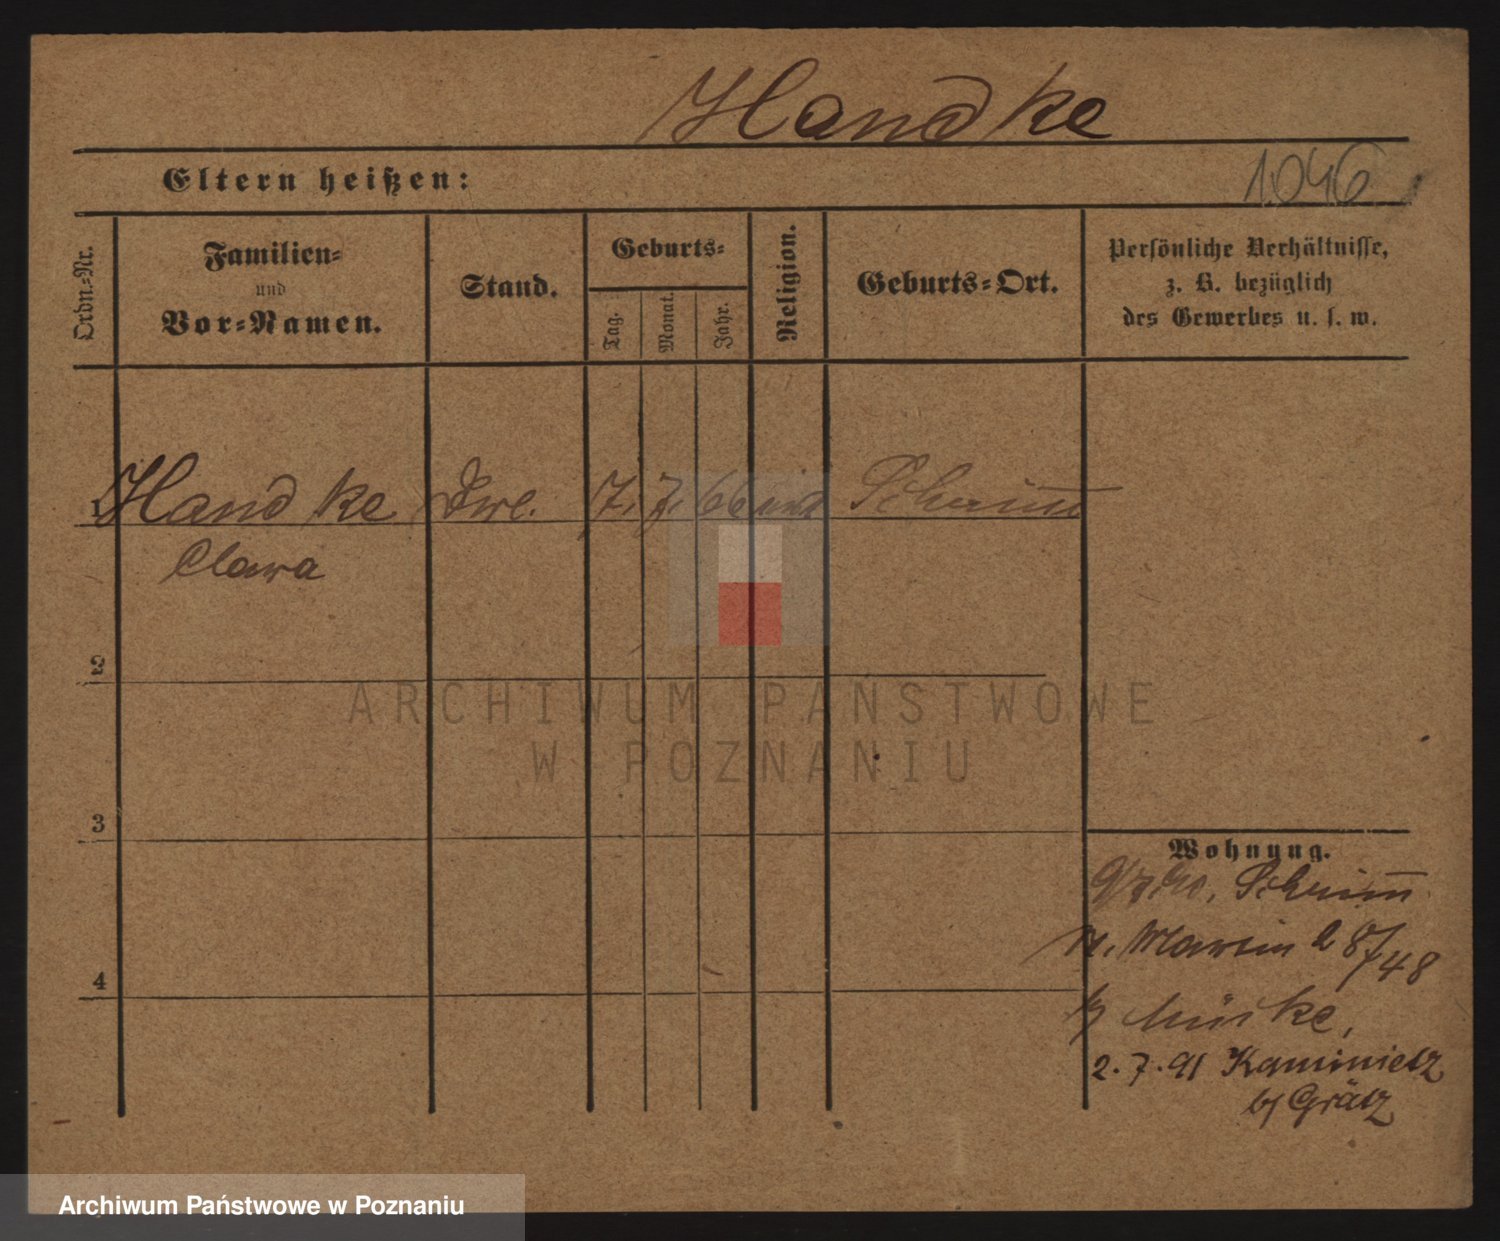 Handke
Eltern heißen:
1046
Ordn.-Nr.
Familien-
und
Vor-Namen.
Stand.
Geburts-
Tag.
Monat.
Jahr.
Religion.
Geburts-Ort.
Persönliche Verhältnisse,
z. B. bezüglich
des Gewerbes u. s. w.
1 Handke 7. 7. 66 Schrimm
Clara
2
ARCHIWUM PAŃSTWOWE
W POZNANIU
3
Wohnung.
Schrimm
St. Martin 2 8/48
2. 7. 91 Kaminietz
b/ Grätz
4
Archiwum Państwowe w Poznaniu